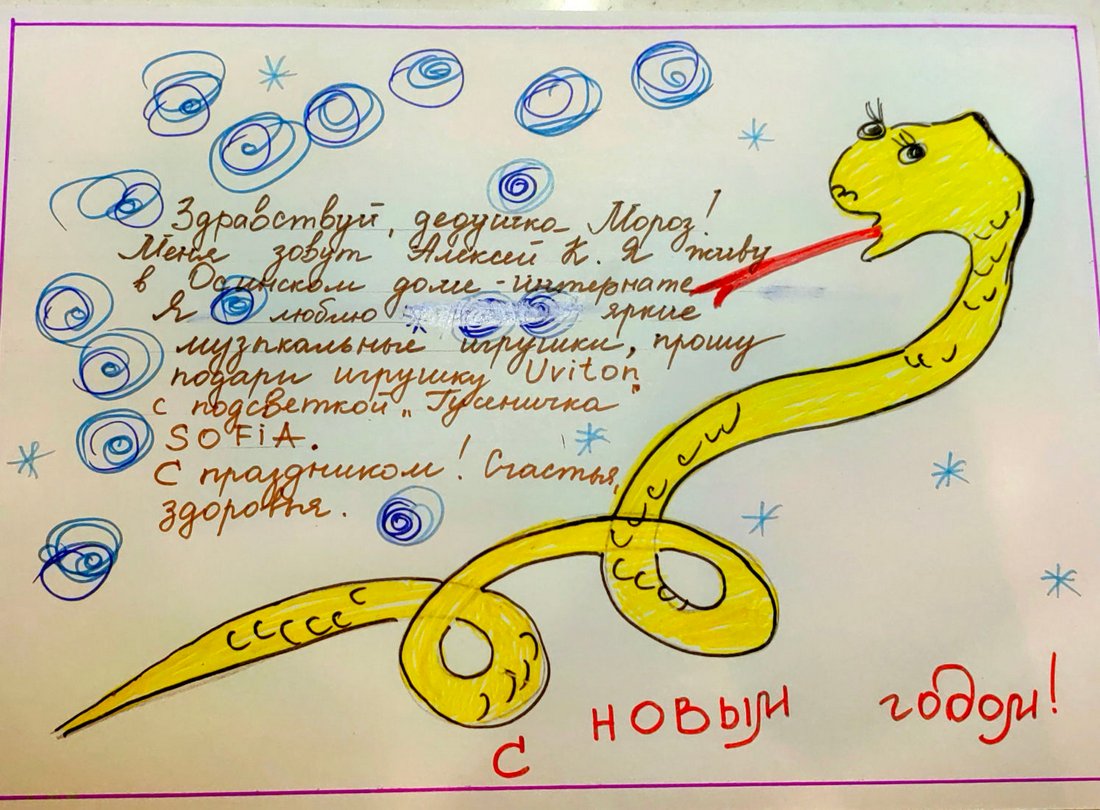 Здравствуй, дедушка Мороз!
Меня зовут Алексей К. Я живу
в Осинском доме-интернате
Я люблю яркие
музыкальные игрушки, прошу
подари игрушку Uviton
с подсветкой „Гусеничка"
SOFiA.
С праздником! Счастья,
здоровья.
С новым годом!